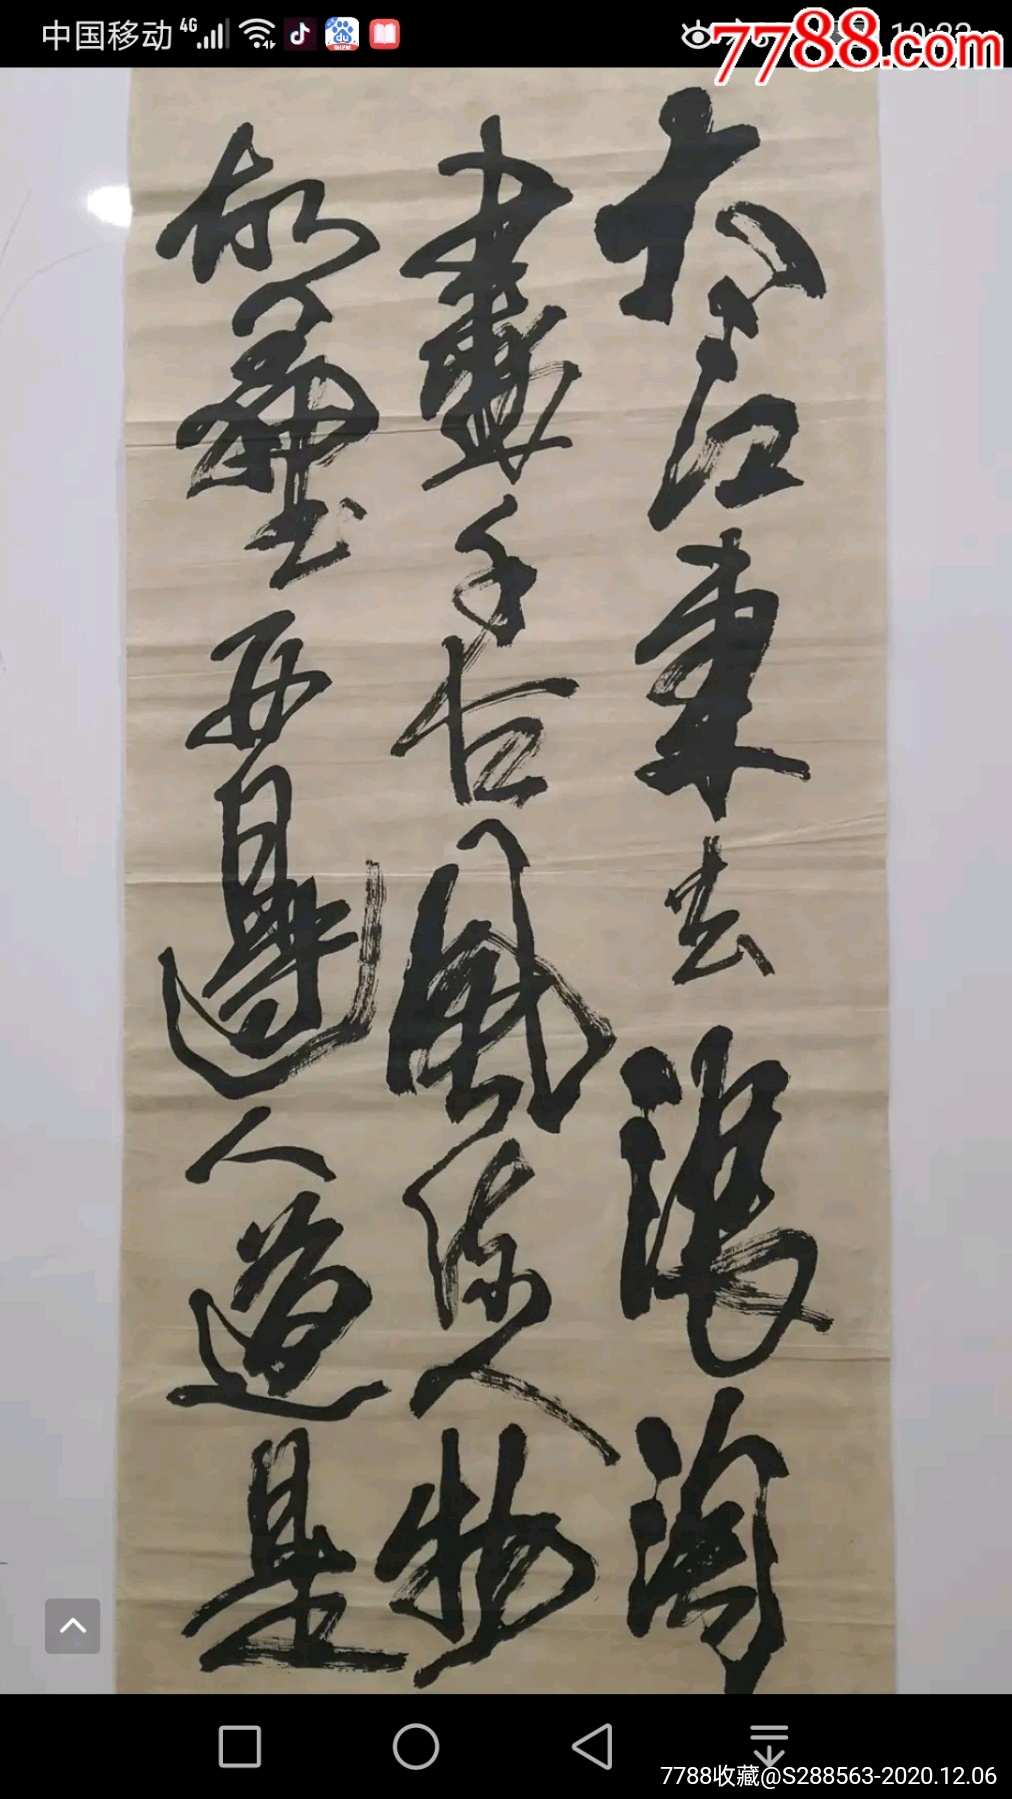 中国移动 4G
7788.com
大江东去浪淘
盡千古風流人物
故壘西邊人道是
7788收藏@S288563-2020.12.06